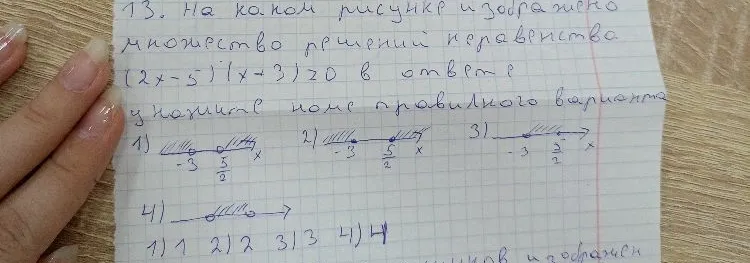 13. На каком рисунке изображено
множество решений неравенства
(2x-5)(x+3)≥0 в ответе
укажите номе правилного варианта
1) -3 5/2 x 2) -3 5/2 x 3) -3 5/2 x
4)
1) 1 2) 2 3) 3 4) 4
изображен